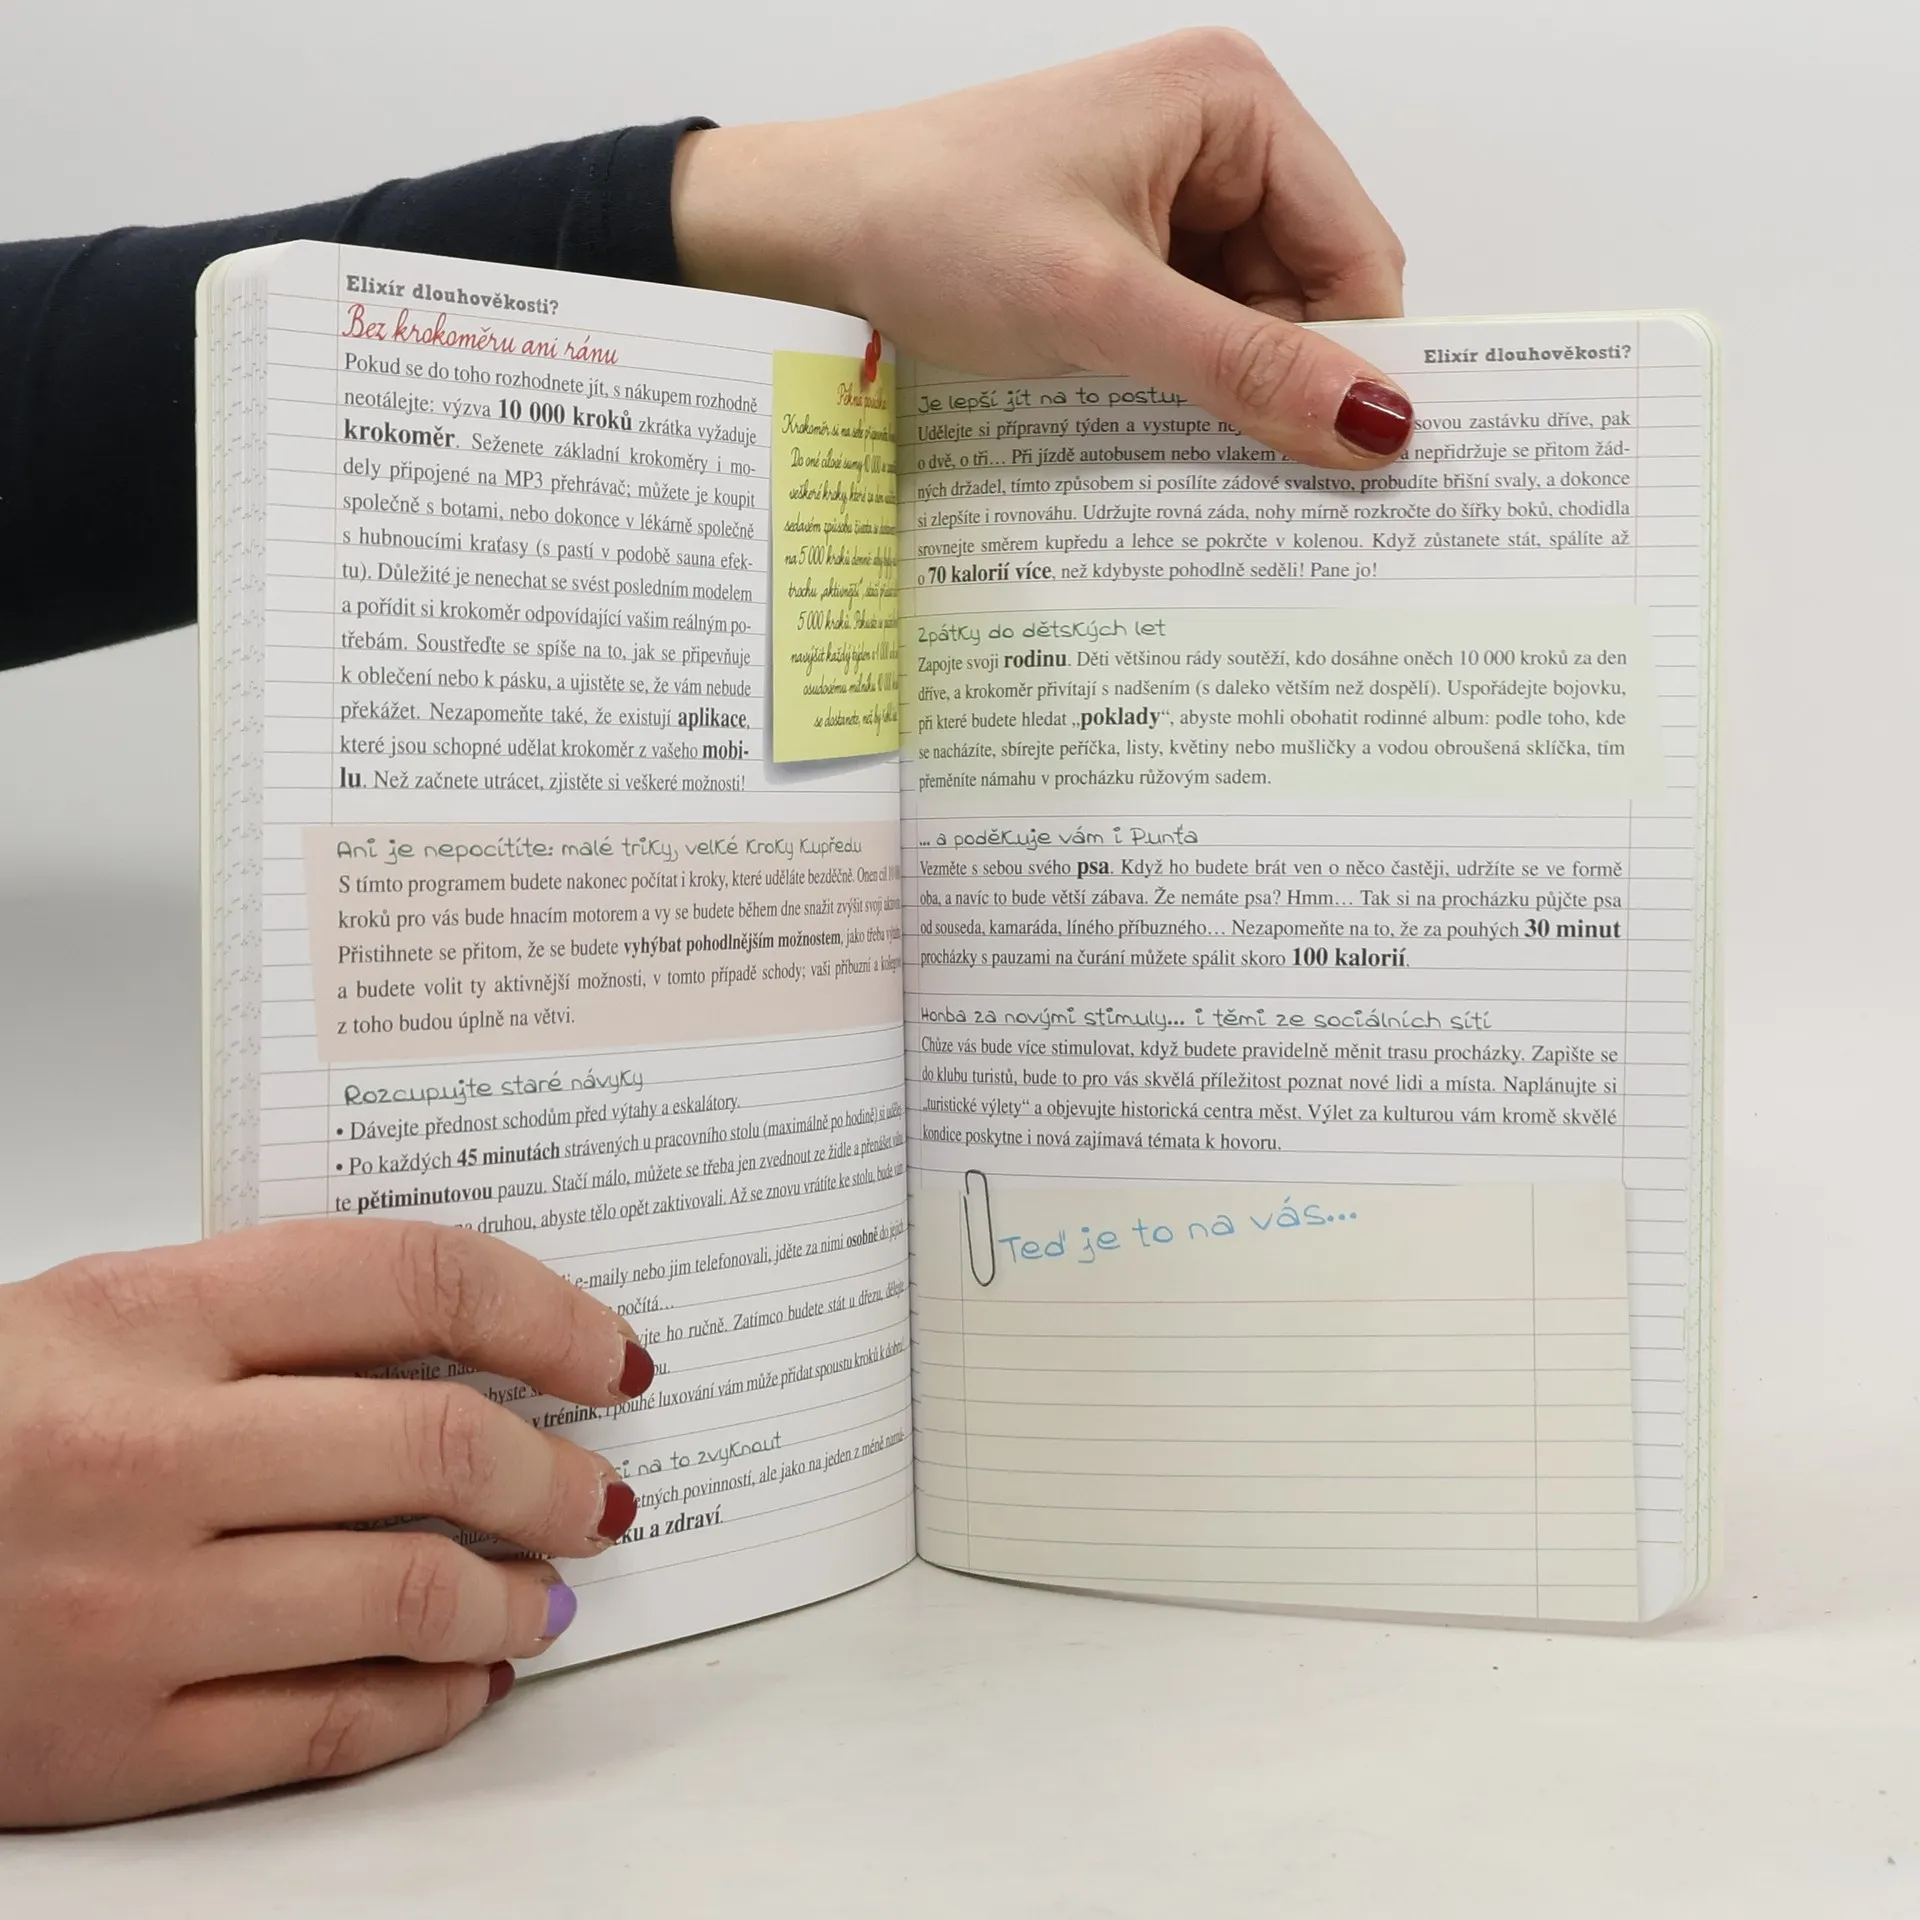 Elixír dlouhověkosti?
Bez krokoměru ani ránu
Pokud se do toho rozhodnete jít, s nákupem rozhodně
neotálejte: výzva 10 000 kroků zkrátka vyžaduje
krokoměr. Seženete základní krokoměry i mo-
dely připojené na MP3 přehrávač; můžete je koupit
společně s botami, nebo dokonce v lékárně společně
s hubnoucími kraťasy (s pastí v podobě sauna efek-
tu). Důležité je nenechat se svést posledním modelem
a pořídit si krokoměr odpovídající vašim reálným po-
třebám. Soustřeďte se spíše na to, jak se připevňuje
k oblečení nebo k pásku, a ujistěte se, že vám nebude
překážet. Nezapomeňte také, že existují aplikace,
které jsou schopné udělat krokoměr z vašeho mobi-
lu. Než začnete utrácet, zjistěte si veškeré možnosti!
Krokoměr si na sebe
Do oné cílové sumy 10 000 se
veškeré kroky, které za den
sedavém způsobu života se
na 5 000 kroků denně
trochu „aktivnější“, stačí
5 000 kroků. Pokuste se
navýšit každý týden o 1 000
osudovému milníku 10 000
se dostanete, než by
Ani je nepocítíte: malé triky, velké kroky kupředu
S tímto programem budete nakonec počítat i kroky, které uděláte bezděčně. Onen cíl
kroků pro vás bude hnacím motorem a vy se budete během dne snažit zvýšit svoji
Přistihnete se přitom, že se budete vyhýbat pohodlnějším možnostem, jako třeba
a budete volit ty aktivnější možnosti, v tomto případě schody; vaši příbuzní a
z toho budou úplně na větvi.
Rozcupujte staré návyky
• Dávejte přednost schodům před výtahy a eskalátory.
• Po každých 45 minutách strávených u pracovního stolu (maximálně po hodině) si
te pětiminutovou pauzu. Stačí málo, můžete se třeba jen zvednout ze židle a přenášet
druhou, abyste tělo opět zaktivovali. Až se znovu vrátíte ke stolu, bude
e-maily nebo jim telefonovali, jděte za nimi osobně do jejich
počítá…
ho ručně. Zatímco budete stát u dřezu,
v trénink, i pouhé luxování vám může přidat spoustu kroků k dobru!
si na to zvyknout
povinností, ale jako na jeden z méně
a zdraví.
Elixír dlouhověkosti?
Je lepší jít na to
Udělejte si přípravný týden a vystupte zastávku dříve, pak
o dvě, o tři… Při jízdě autobusem nebo vlakem nepřidržuje se přitom žád-
ných držadel, tímto způsobem si posílíte zádové svalstvo, probudíte břišní svaly, a dokonce
si zlepšíte i rovnováhu. Udržujte rovná záda, nohy mírně rozkročte do šířky boků, chodidla
srovnejte směrem kupředu a lehce se pokrčte v kolenou. Když zůstanete stát, spálíte až
o 70 kalorií více, než kdybyste pohodlně seděli! Pane jo!
Zpátky do dětských let
Zapojte svoji rodinu. Děti většinou rády soutěží, kdo dosáhne oněch 10 000 kroků za den
dříve, a krokoměr přivítají s nadšením (s daleko větším než dospělí). Uspořádejte bojovku,
při které budete hledat „poklady“, abyste mohli obohatit rodinné album: podle toho, kde
se nacházíte, sbírejte peříčka, listy, květiny nebo mušličky a vodou obroušená sklíčka, tím
přeměníte námahu v procházku růžovým sadem.
... a poděkuje vám i Punťa
Vezměte s sebou svého psa. Když ho budete brát ven o něco častěji, udržíte se ve formě
oba, a navíc to bude větší zábava. Že nemáte psa? Hmm… Tak si na procházku půjčte psa
od souseda, kamaráda, líného příbuzného… Nezapomeňte na to, že za pouhých 30 minut
procházky s pauzami na čurání můžete spálit skoro 100 kalorií.
Honba za novými stimuly... i těmi ze sociálních sítí
Chůze vás bude více stimulovat, když budete pravidelně měnit trasu procházky. Zapište se
do klubu turistů, bude to pro vás skvělá příležitost poznat nové lidi a místa. Naplánujte si
„turistické výlety“ a objevujte historická centra měst. Výlet za kulturou vám kromě skvělé
kondice poskytne i nová zajímavá témata k hovoru.
Teď je to na vás...